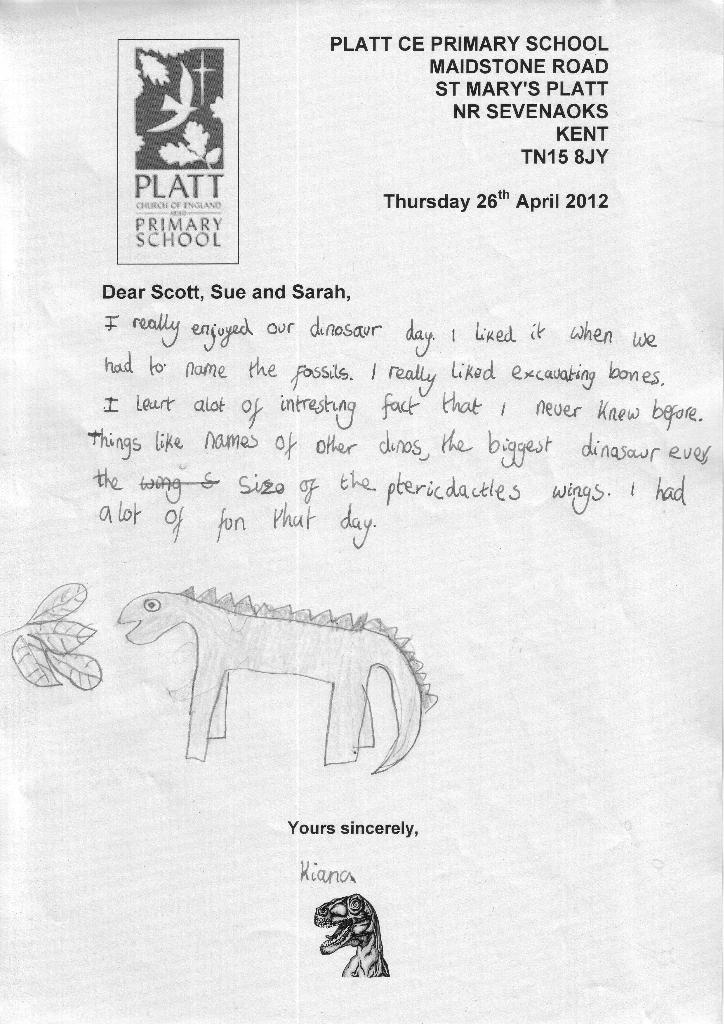 PLATT CE PRIMARY SCHOOL
MAIDSTONE ROAD
ST MARY'S PLATT
NR SEVENAOKS
KENT
TN15 8JY
Thursday 26th April 2012
PLATT
CHURCH OF ENGLAND
PRIMARY
SCHOOL
Dear Scott, Sue and Sarah,
I really enjoyed our dinosaur day. I liked it when we
had to name the fossils. I really liked excavating bones.
I leart alot of intresting fact that I never knew before.
things like names of other dinos, the biggest dinasaur ever
the wing s size of the ptericdactles wings. I had
alot of fun that day.
Yours sincerely,
Kiana